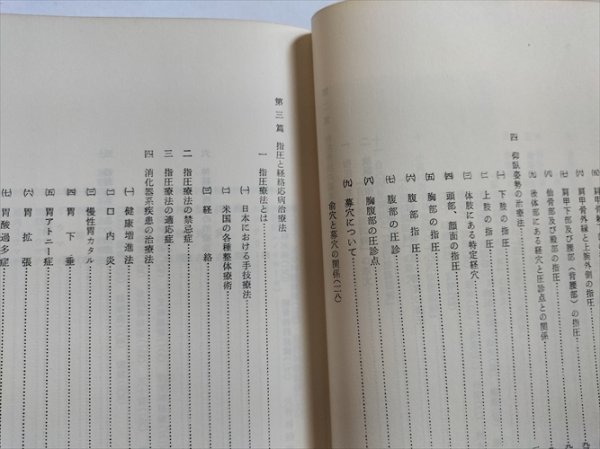 ㈤ 肩甲
㈥ 肩甲骨外縁と上腕外側の指圧
㈦ 肩甲下部及び腰部（背腰部）の指圧
㈧ 仙骨部及び殿部の指圧
㈨ 後体部にある経穴と圧診点との関係
四 仰臥姿勢の治療法
㈠ 下肢の指圧
㈡ 上肢の指圧
㈢ 体肢にある特定経穴
㈣ 頭部、顔面の指圧
㈤ 胸部の指圧
㈥ 腹部指圧
㈦ 腹部の圧診点
㈧ 胸腹部の圧診点
㈨ 募穴について
兪穴と募穴の関係（二八）
第三篇 指圧と経絡応病治療法
一 指圧療法とは
㈠ 日本における手技療法
㈡ 米国の各種整体療術
㈢ 経絡
二 指圧療法の禁忌症
三 指圧療法の適応症
四 消化器系疾患の治療法
㈠ 健康増進法
㈡ 口内炎
㈢ 慢性胃カタル
㈣ 胃下垂
㈤ 胃アトニー症
㈥ 胃拡張
㈦ 胃酸過多症